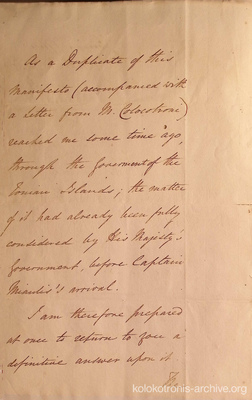 As a Duplicate of this
Manifesto (accompanied with
a letter from M. Colocotroni)
reached me some time ago,
through the Government of the
Ionian Islands; the matter
of it had already been fully
considered by His Majesty's
Government, before Captain
Miaulis's arrival.
I am therefore prepared
at once to return to you a
definitive answer upon it
kolokotronis-archive.org